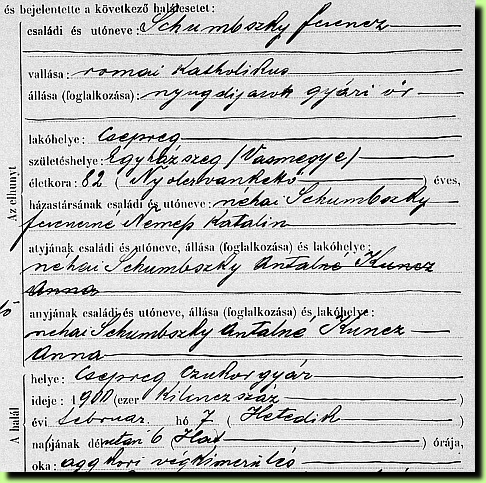 és bejelentette a következő halálesetet:
családi és utóneve: Schumbszky Ferencz
vallása: romai katholikus
állása (foglalkozása): nyugdijazok gyári őr
lakóhelye: Csepreg
születéshelye: Egyházszeg (Vasmegye)
életkora: 82 ( Nyolczvankető ) éves,
házastársának családi és utóneve: néhai Schumbszky
Ferenczné Nemes Katalin
atyjának családi és utóneve, állása (foglalkozása) és lakóhelye:
néhai Schumbszky Antalné Kuncz
Anna
anyjának családi és utóneve, állása (foglalkozása) és lakóhelye:
néhai Schumbszky Antalné Kuncz
Anna
Az elhunyt
helye: Csepreg Czukorgyár
ideje: 1900 (ezer Kilenczszáz
évi február hó 7 ( Hetedik )
napjának délután 6 ( Hat ) órája,
oka: aggkori végkimerülés
A halál